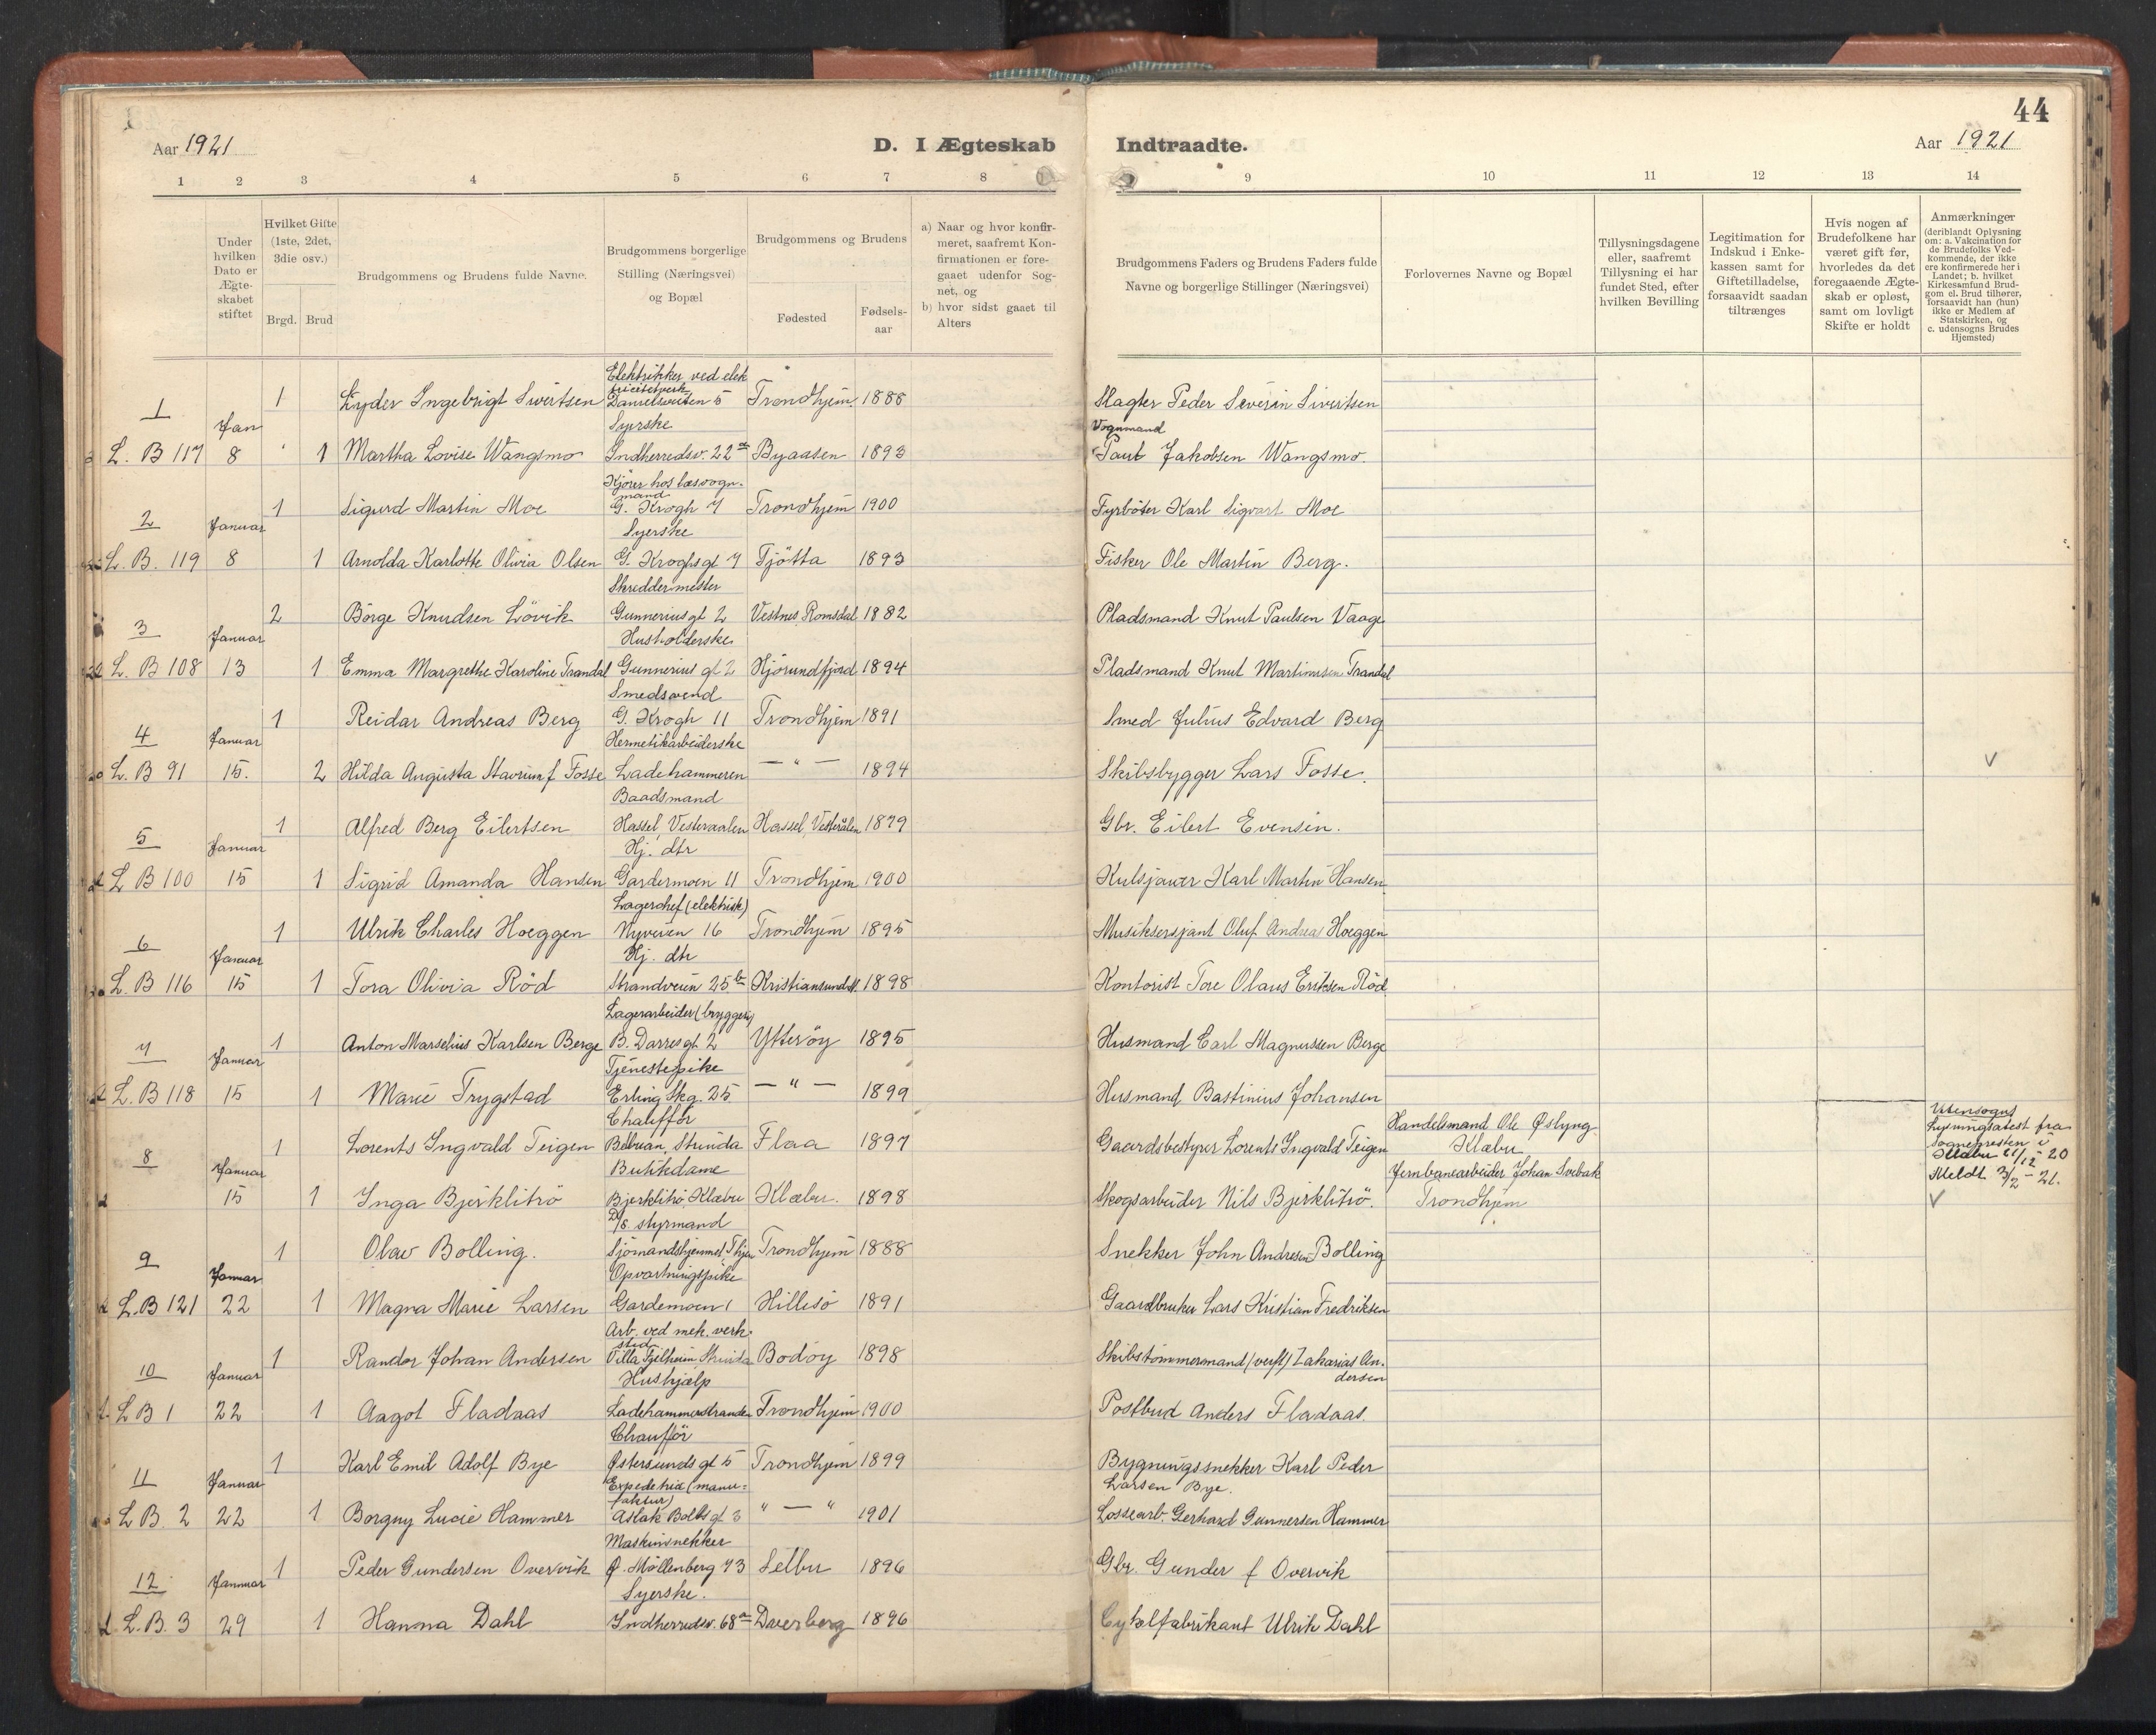 44
Aar 1921 D. I Ægteskab Indtraadte. Aar 1921
1 2 3 4 5 6 7 8 9 10 11 12 13 14
Under hvilken Dato er Ægte-skabet stiftet
Hvilket Gifte (1ste, 2det, 3die osv.)
Brgd. Brud
Brudgommens og Brudens fulde Navne.
Brudgommens borgerlige Stilling (Næringsvei) og Bopæl
Brudgommens og Brudens
Fødested
Fødsels-aar
a) Naar og hvor konfir-meret, saafremt Kon-firmationen er fore-gaaet udenfor Sog-net, og
b) hvor sidst gaaet til Alters
Brudgommens Faders og Brudens Faders fulde Navne og borgerlige Stillinger (Næringsvei)
Forlovernes Navne og Bopæl
Tillysningsdagene eller, saafremt Tillysning ei har fundet Sted, efter hvilken Bevilling
Legitimation for Indskud i Enke-kassen samt for Giftetilladelse, forsaavidt saadan tiltrænges
Hvis nogen af Brudefolkene har været gift før, hvorledes da det foregaaende Ægte-skab er opløst, samt om lovligt Skifte er holdt
Anmærkninger (deriblandt Oplysning om: a. Vakcination for de Brudefolks Ved-kommende, der ikke ere konfirmerede her i Landet; b. hvilket Kirkesamfund Brud-gom el. Brud tilhører, forsaavidt han (hun) ikke er Medlem af Statskirken, og c. udensogns Brudes Hjemsted)
Elektrikker ved elek
tricitetverk
1 1 Lyder Ingebrigt Sivertsen Danielsveiten 5 Trondhjem 1888 Slagter Peder Severin Sivertsen
Jan Syerske Vognmand
L. B 117 8 1 Martha Lovise Wangsmo Indherredsv. 22a Byaasen 1893 Paul Jakobsen Wangsmo.
Kjører hos læsvogn-
mand
2 Januar 1 Sigurd Martin Moe G. Krogh 7 Trondhjem 1900 Fyrbøter Karl Sigvart Moe
Syerske
L. B. 119 8 1 Arnolda Karlotte Olivia Olsen G. Kroghsgt 7 Tjötta 1893 Fisker Ole Martin Berg.
Skreddermester
3 Januar 2 Börge Knudsen Lövik Gunneriusgt 2 Vestnes, Romsdal 1882 Pladsmand Knut Paulsen Vaage
Husholderske
L. B 108 13 1 Emma Margrethe Karoline Trandal Gunnerius gt 2 Hjörundfjord 1894 Pladsmand Knut Martinusen Trandal
Smedsvend
4 Januar 1 Reidar Andreas Berg G. Krogh 11 Trondhjem 1891 Smed Julius Edvard Berg
Hermetikarbeiderske
L. B 91 15. 2 Hilda Angusta Stavrum f Fosse Ladehammeren — " — 1894 Skibsbygger Lars Fosse. V
Baadsmand
5 Januar 1 Alfred Berg Eilertsen Hassel, Vesteraalen Hassel, Vesterålen 1879 Gbr. Eilert Evensen.
Hj. dtr
L B 100 15 1 Sigrid Amanda Hansen Gardermoen 11 Trondhjem 1900 Kulsjauer Karl Martin Hansen
Lagerchef (elektrisk)
6 Januar 1 Ulrik Charles Hoeggen Nyveien 16 Trondhjem 1895 Musiksersjant Oluf Andreas Hoeggen
Hj. dtr
L. B 116 15 1 Tora Olivia Röd Strandveien 25b Kristiansund N. 1898 Kontorist Tore Olaus Eriksen Röd
Lagerarbeider (bryggeri)
7 Januar 1 Anton Marselius Karlsen Berge B. Darresgt. 2 Ytteröy 1895 Husmand Carl Magnussen Berge
Tjenestepike
L. B 118 15 1 Marie Trygstad Erling Skg. 25 — " — 1899 Husmand Bastinius Johansen
Chaufför Handelsmand Ole Östyng Utensogns
8 Januar 1 Lorents Ingvald Teigen Strinda Flaa 1897 Gaardsbestyrer Lorents Ingvald Teigen Klæbu Lysningsatest fra
Butikdame Jernbanearbeider Johan Svebak Sognepresten i
15 1 Inga Bjerklitrö Bjerklitrö, Klæbu Klæbu. 1898 Skogsarbeider Nils Bjerklitrö. Trondhjem Klæbu 21/12 - 20
Meldt 3/2 - 21.
V
D/S styrmand
9 Januar 1 Olav Bolling. Sjömandshjemmet, Thjem Trondhjem 1888 Snekker John Andresen Bolling
Opvartningspike
L.B 121 22 1 Magna Marie Larsen Gardemoen 1 Hillesö 1891 Gaardbruker Lars Kristian Fredriksen
Arb. ved mek. verk-
sted
10 Januar 1 Randor Johan Andersen Villa Fjelheim, Strinda Bodöy 1898 Skibstömmermand (verft) Zakarias An-
dersen
Hushjælp
L B 1 22 1 Aagot Fladaas Ladehammerstranden Trondhjem 1900 Postbud Anders Fladaas
Chaufför
11 Januar 1 Karl Emil Adolf Bye Østersunds gt 5 Trondhjem 1899 Bygningssnekker Karl Peder
Larsen Bye.
Expeditrice (manu=
faktur)
L B. 2 22 1 Borgny Lucie Hammer Aslak Bolts gt 3 " — " 1901 Lossearb. Gerhard Gunnersen Hammer
Maskinsnekker
12 Januar 1 Peder Gundersen Overvik Ø. Möllenberg 73 Selbu 1896 Gbr. Gunder f Overvik
Syerske.
L. B. 3 29 1 Hanna Dahl Indherredsv. 68a Dverberg 1896 Cykelfabrikant Ulrik Dahl